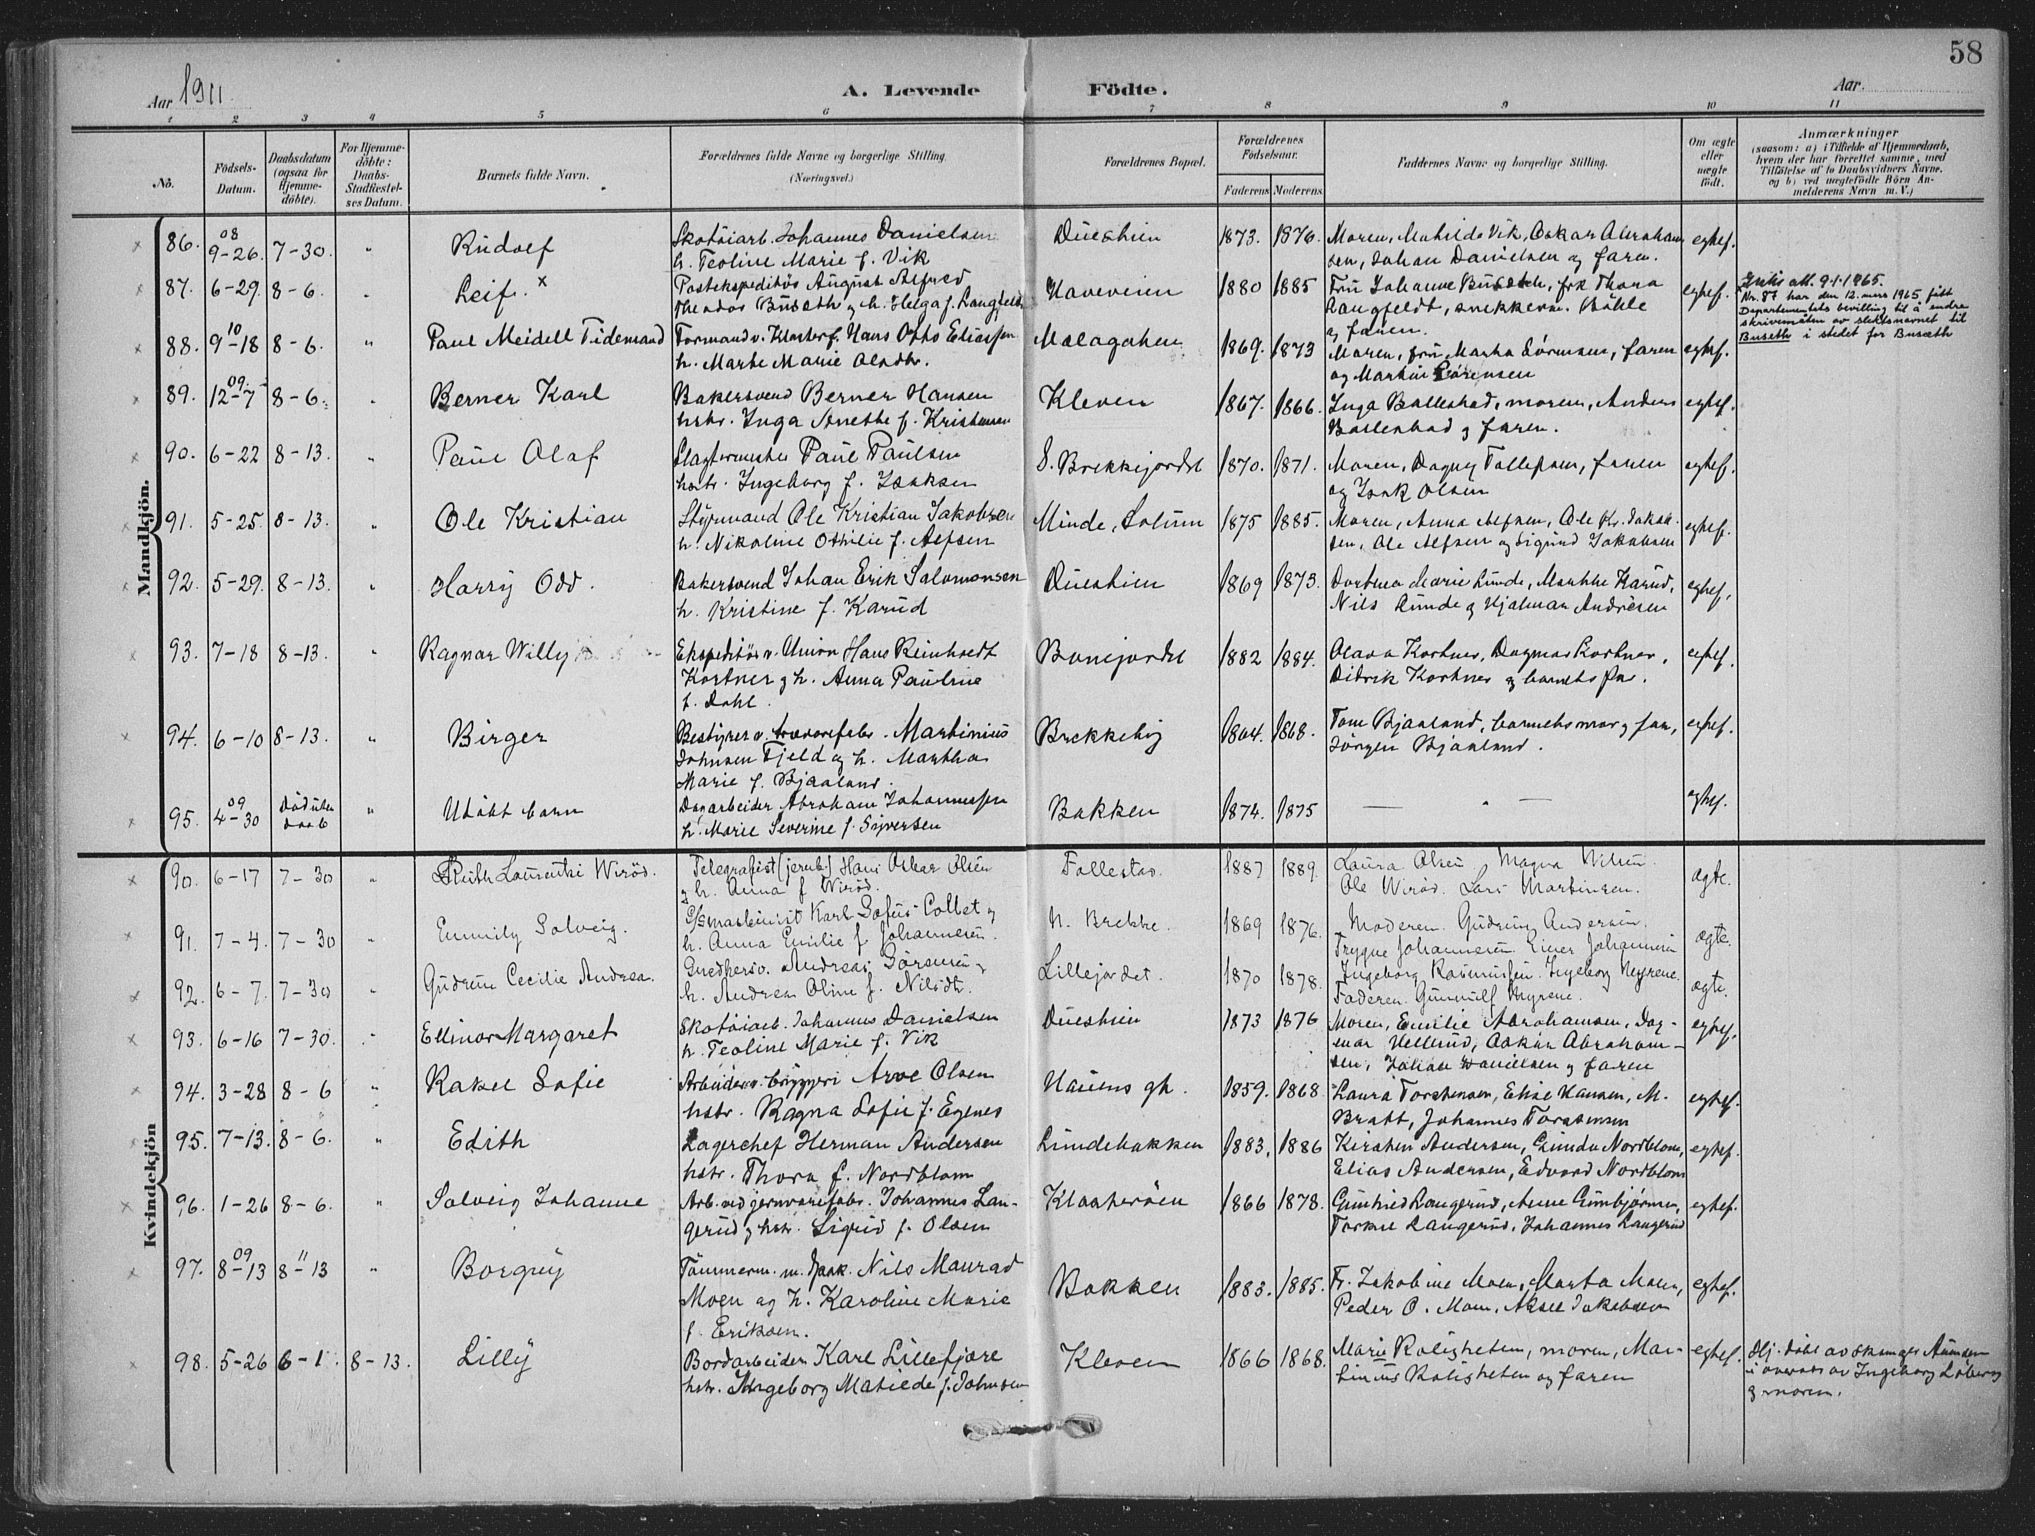 58
Aar 1911.
A. Levende Födte.
Aar.
1 2 3 4 5 6 7 8 9 10 11
No.
Födsels-Datum.
Daabsdatum (ogsaa for Hjemme-döbte).
For Hjemme-döbte: Daabs-Stadfæstel-ses Datum.
Barnets fulde Navn.
Forældrenes fulde Navne og borgerlige Stilling. (Næringsvei.)
Forældrenes Bopæl.
Forældrenes Födselsaar.
Faderens Moderens
Faddernes Navne og borgerlige Stilling.
Om ægte eller uægte födt.
Anmærkninger
(saasom: a) i Tilfælde af Hjemmedaab,
hvem der har forrettet samme, med
Tilföielse af to Daabsvidners Navne.
og b) ved uægtefödte Börn An-
melderens Navn m. V.)
Mandkjön.
86. 08 9-26. 7-30. " Rudolf
Skotøiarb. Johannes Danielsen
h. Teoline Marie f. Vik
Dueshien 1873. 1876.
Moren, Mathilde Vik, Oskar Abraham
sen, Johan Danielsen og faren.
eghef.
87. 6-29. 8-6. " Leif. x
Postekspeditør August Alfred
Theodor Busæth og h. Helga f. Langfeldt
Haveveien 1880 1885
Fru Johanne Busæth, frk Thora
Langfeldt, snekkerm. Bøhle
og faren.
eghef.
Nr. 87 har den 12. mars 1965 fått
Departementets bevilling til å endre
skrivemåten av slektsnavnet til
Buseth i stedet for Busæth
88. 10 9-18 8-6. " Paul Meidell Tidemand
Formand v. Klosterf. Hans Otto Eliassen
h. Marte Marie
1869. 1873
Moren, fru Martha Sørensen, faren
og Martin Sørensen
eghef.
89. 09. 12-7 8-6. " Berner Karl
Bakersvend Berner Hansen
hstr. Inga Anethe f. Kristensen
Kleven 1867. 1866.
Inga Ballestad, moren, Anders
Ballestad og faren.
eghef.
90. 6-22 8-13. " Paul Olaf
Slagtermester Paul Paulsen
hstr. Ingeborg f. Isaksen
S. Brekkejordet 1870. 1871.
Moren, Dagny Tollefsen, faren
og Isak Olsen
eghef.
91. 5-25. 8-13. " Ole Kristian
Styrmand Ole Kristian Jakobsen
h. Nikoline Othilie f. Alfsen
Minde, Solum 1875 1885.
Moren, Anna Alfsen, Ole Kr. Jakob-
sen, Ole Alfsen og Sigurd Jakobsen
eghef.
92. 5-29. 8-13. " Harry Odd.
Bakersvend Johan Erik Salomonsen
h. Kristine f. Karud
Dueshien 1869 1873.
Dorthea Marie Lunde, Marthe Karud,
Nils Lunde og Hjalmar Andresen
eghef.
93. 7-18 8-13. " Ragnar Willy
Ekspeditør v. Union Hans Reinhardt
Kortner og h. Anna Pauline
f. Dahl.
Bonejordet 1882 1884.
Olava Kortner, Dagmar Kortner,
Didrik Kortner og barnets far.
eghef.
94. 6-10 8-13. " Birger
Bestyrer v. trævarefabr. Martinius
Johnsen Fjeld og h. Martha
Marie f. Bjaaland.
Brekkeby 1864. 1868.
Tone Bjaaland, barnets mor og far,
Jørgen Bjaaland.
eghef.
95. 09 4-30 Död uten daab " Udøbt barn
Dagarbeider Abraham Johannessen
h. Marie Severine f. Syversen
Bakken 1874. 1875
— " —
eghef.
Kvindekjön
90. 6-17 7-30 " Ruth Laurentze Wiröd.
Telegrafist (jernb.) Hans Oskar Olsen
og h. Anna f. Wiröd.
Follestad. 1887 1889.
Laura Olsen Magna Nilsen.
Ole Wiröd. Lars Martinsen.
ægte.
91. 7-4. 7-30 " Emmily Solveig.
Karl Sofus Colbet og
h. Anna Emilie f. Johannesen.
N. Brekke. 1869 1876.
Moderen. Gudrun Andersen.
Trygve Johannesen. Einar Johannesen
ægte.
92. 6-7. 7-30 " Gudrun Cecilie Andrea.
Andreas Sørensen og
h. Andrea Oline f.
Lillejordet. 1870 1878.
Ingeborg Rasmussen. Ingeborg Myrene.
Faderen. Gunnulf Myrene.
ægte.
93. 6-16 7-30. " Ellinor Margaret
Skotøiarb. Johannes Danielsen
h. Teoline Marie f. Vik
Dueshien 1873 1876
Moren, Emilie Abrahamsen, Dag-
mar Hellerud, Oskar Abraham-
sen, Johan Danielsen og faren
eghef.
94. 3-28 8-6 " Rakel Sofie
Arbeider v. bryggeri Arve Olsen
hstr. Ragna Sofie f. Egenes
Hauens gt. 1859. 1868
Laura Torstensen, Elise Hansen, M.
Bratt, Johannes
eghef.
95. 7-13. 8-6. " Edith
Lagerchef Herman Andersen
hstr. Thora f. Nordblom
Lundebakken 1883. 1886
Kirsten Andersen, Gunda Nordblom,
Elias Andersen, Edvard Nordblom
eghef.
96. 1-26 8-6. " Solveig Johanne
Arb. ved jernvarefabr. Johannes Lan-
gerud og hstr. Sigrid f. Olsen
Klosterøen 1866 1878.
Gunhild Langerud, Anne Gunbjørnsen,
Torkel Langerud, Johannes Langerud
eghef.
97. 09 8-13 11 8-13 " Borguy
Tømmerm. m. Nils Maurad
Moen og h. Karoline Marie
f. Eriksen.
Bakken 1883. 1885.
Fr. Jakobine Moen, Marta Moen,
Peder O. Moen, Aksel Jakobsen
eghef.
98. 5-26 6-1 8-13. Lilly
Bordarbeider Karl Lillefjære
hstr. Ingeborg Matilde f. Johnsen
Kleven 1866 1868.
Marie Roligheten, moren, Mar-
tinius Roligheten og faren
eghef.
Hj. døbt av
i overvær av Ingeborg
og moren.